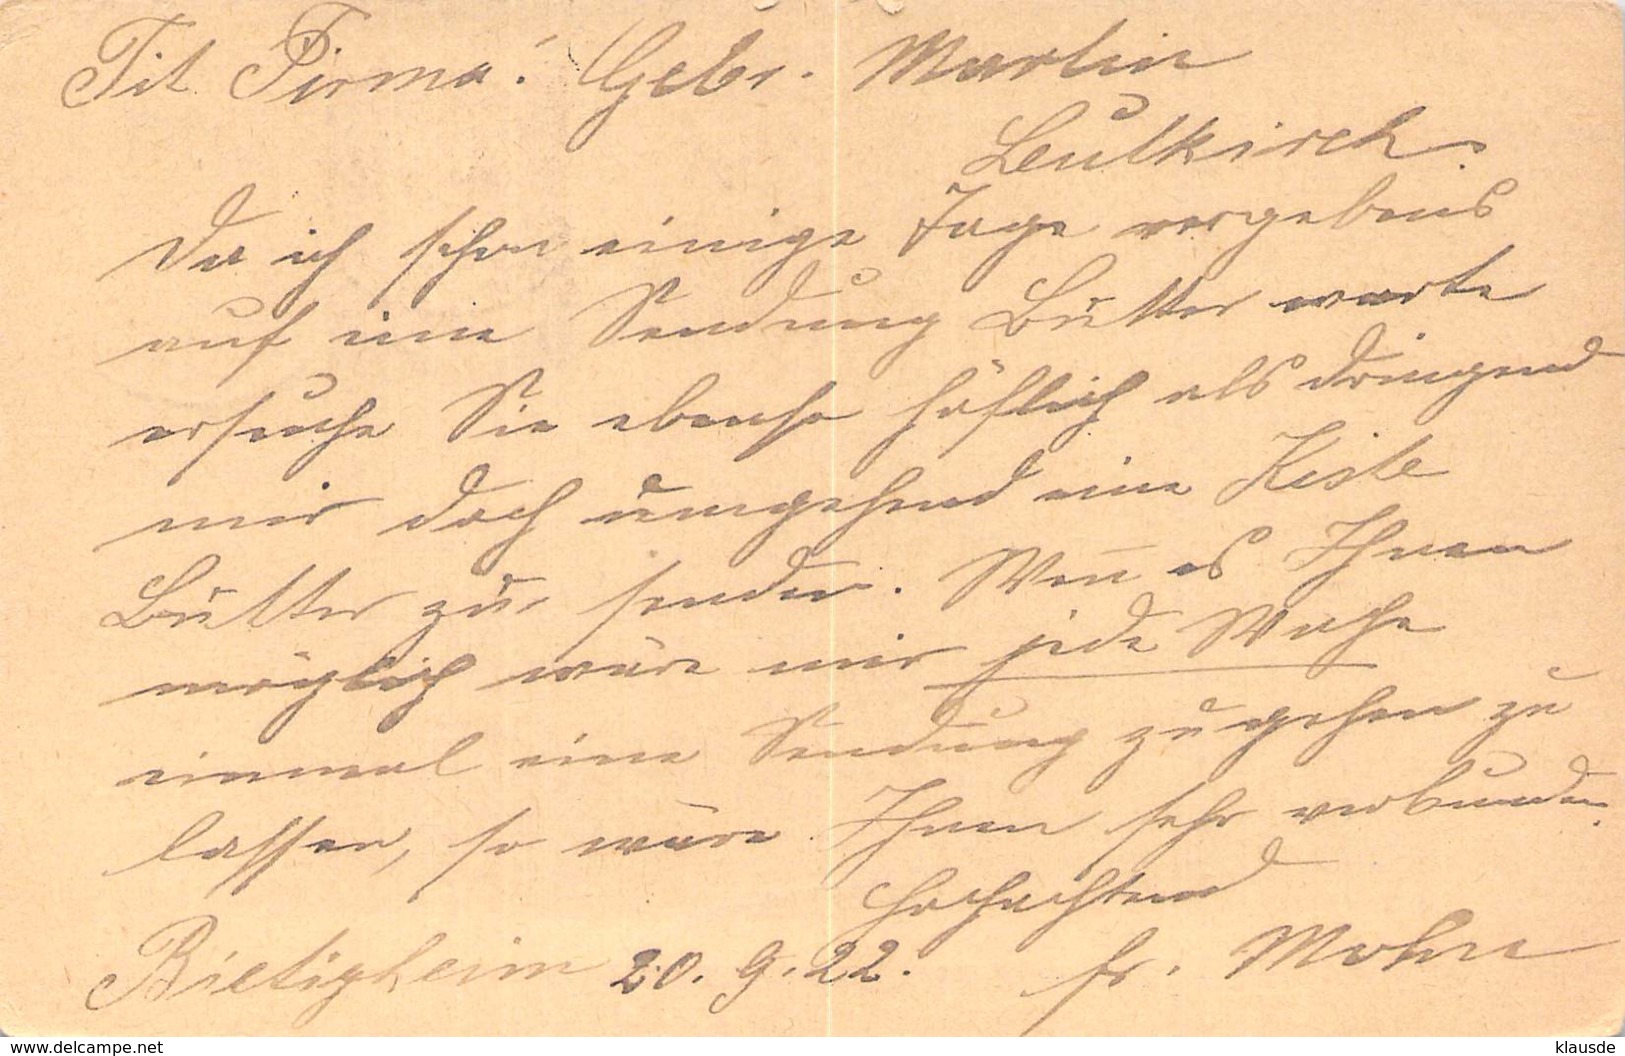 Tit. Firma! Gebr. Martin
Leutkirch.
Da ich schon einige Tage vergebens
auf eine Sendung Butter warte
ersuche Sie ebenso höflich als dringend
mir doch umgehend eine Kiste
Butter zu senden. Wen̅ es Ihnen
möglich wäre mir jede Woche
einmal eine Sendung zugehen zu
lassen, so wäre Ihnen sehr verbunden.
Hochachtend
Bietigheim 20.9.22. Fr. Mohn
www.delcampe.net klausde